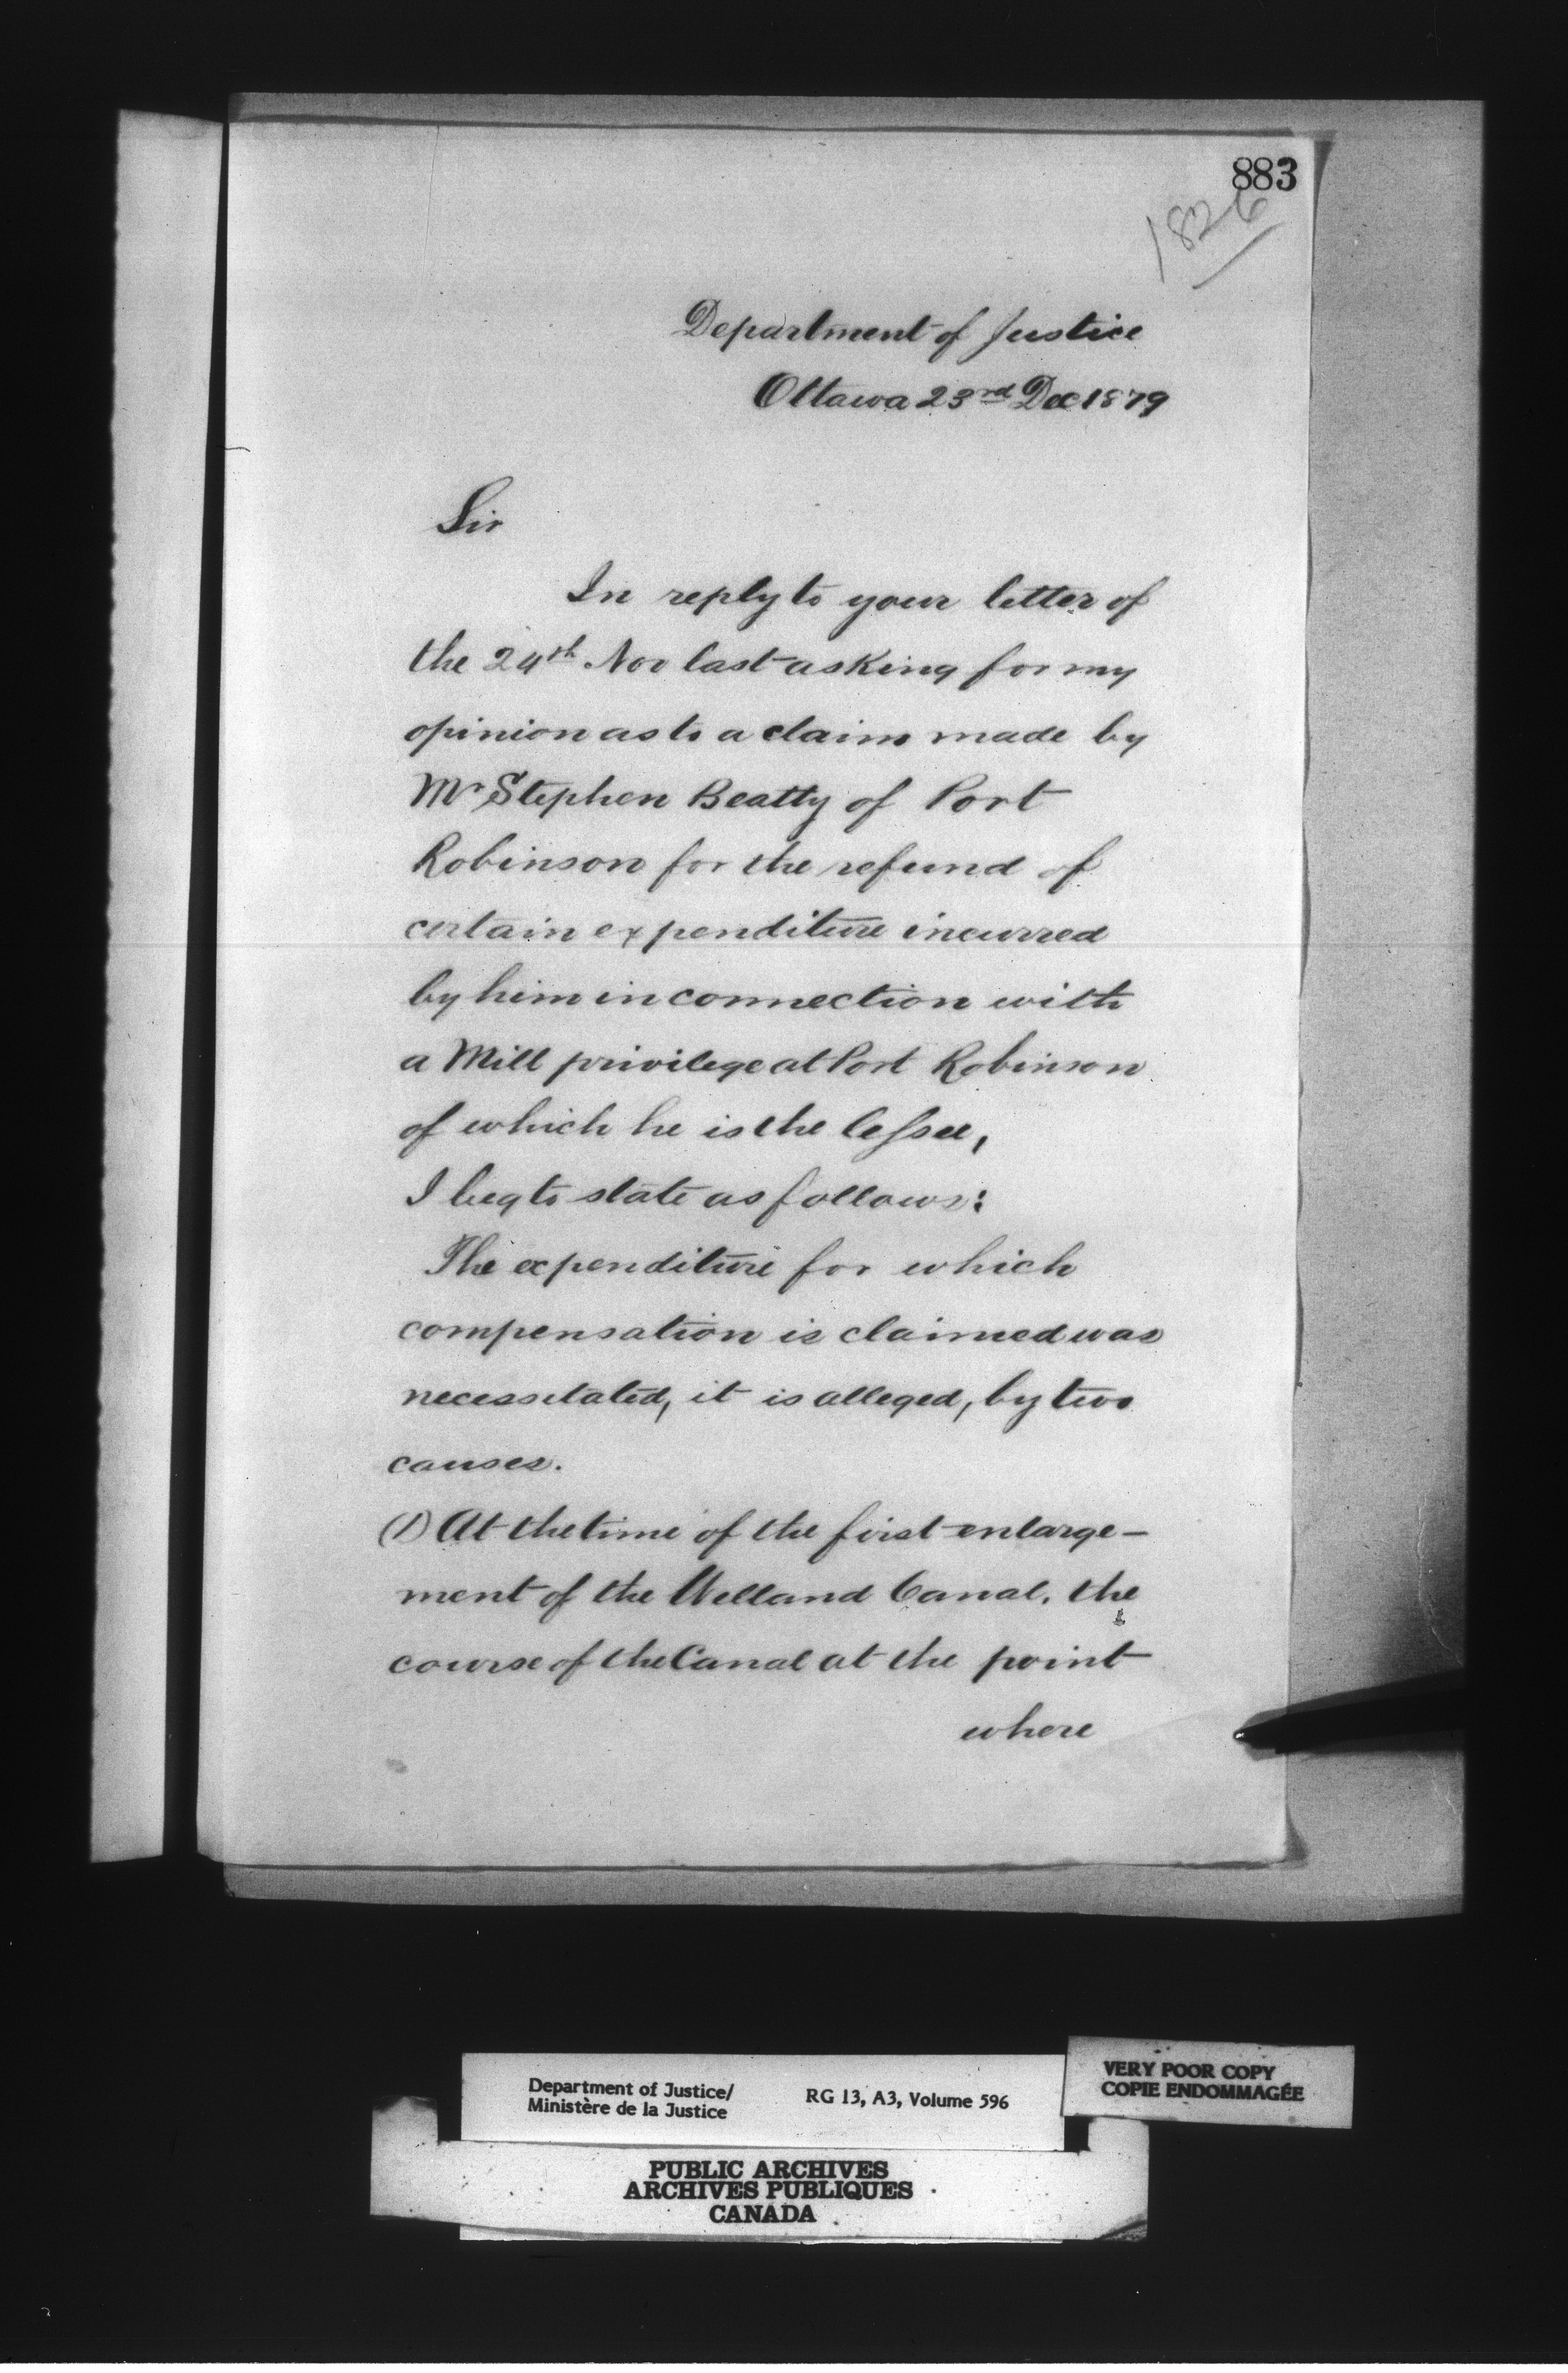 883
1826
Department of Justice
Ottawa 23rd Dec 1879
Sir
In reply to your letter of
the 24th Nov last asking for my
opinion as to a claim made by
Mr Stephen Beatty of Port
Robinson for the refund of
certain expenditure incurred
by him in connection with
a Mill privilege at Port Robinson
of which he is the lessee,
I beg to state as follows:
The expenditure for which
compensation is claimed was
necessitated, it is alleged, by two
causes.
(1) At the time of the first enlarge-
ment of the Welland Canal, the
course of the Canal at the point
where
Department of Justice/
Ministère de la Justice
RG 13, A3, Volume 596
VERY POOR COPY
COPIE ENDOMMAGÉE
PUBLIC ARCHIVES
ARCHIVES PUBLIQUES
CANADA